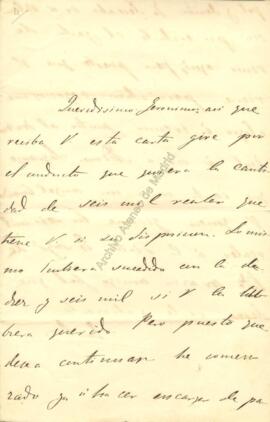 Queridisimo Jeronimo, asi que
reciba V esta carta gire por
el conducto que quiera la canti
dad de seis mil reales que
tiene V a su disposicion. Lo mis
mo hubiera sucedido con la de
diez y seis mil si V la hu
biera querido Pero puesto que
desea continuar he comen
zado ya á hacer encargo de pa
Archivo Ateneo de Madrid